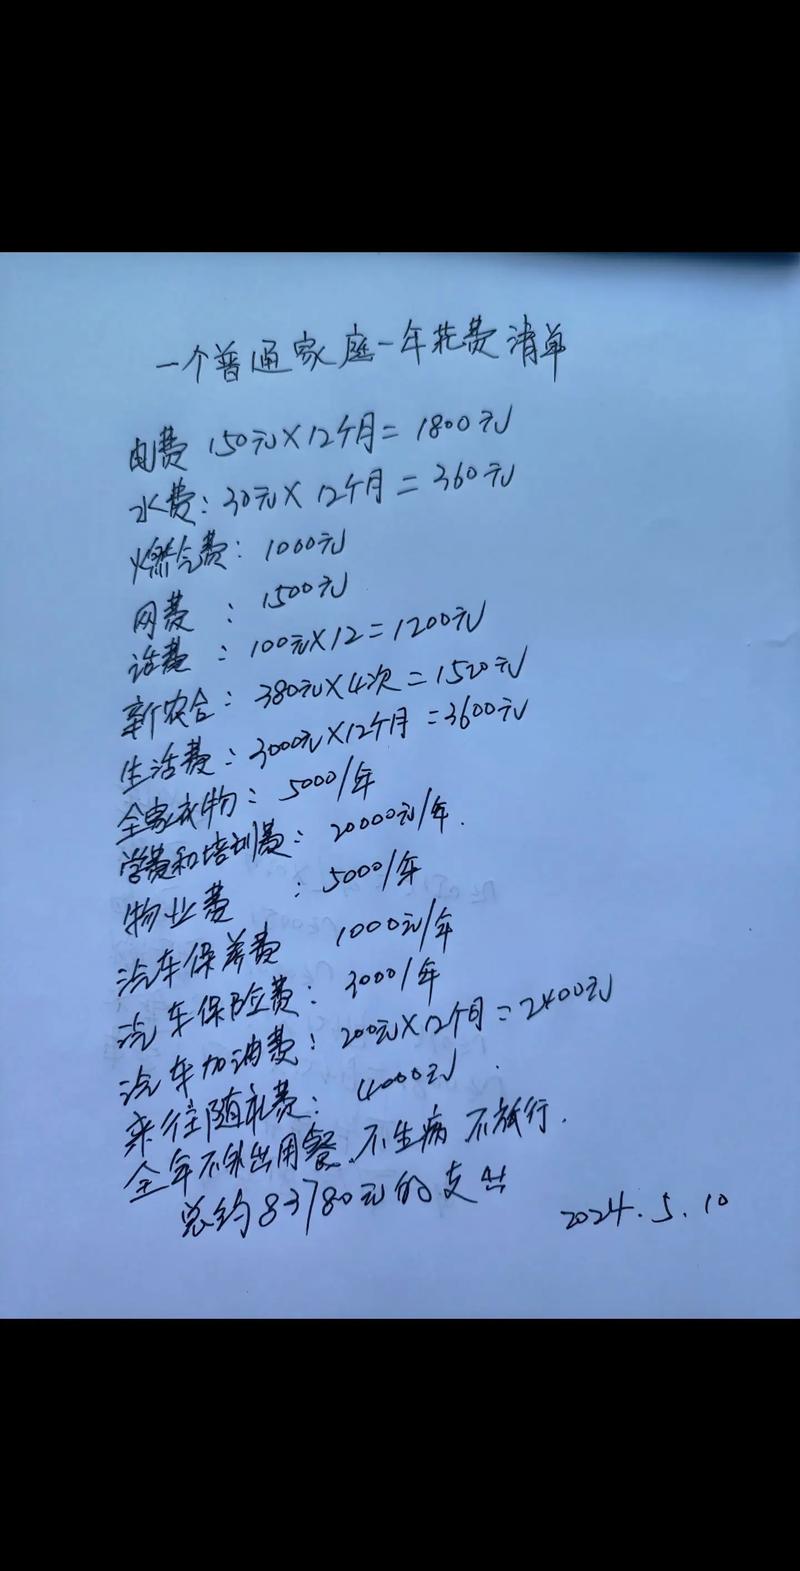 一个普通家庭一年花费清单
电费 150元×12个月=1800元
水费：30元×12个月=360元
燃气费：1000元
网费：1500元
话费：100元×12=1200元
新农合：380元×4次=1520元
生活费：3000元×12个月=3600元
全家衣物：5000/年
学费和培训费：20000元/年.
物业费：5000/年
汽车保养费 1000元/年
汽车保险费：3000/年
汽车加油费：200元×12个月=2400元
来往随礼费：4000元.
全年不外出用餐、不生病 不旅行.
总约83780元的支出
2024.5.10